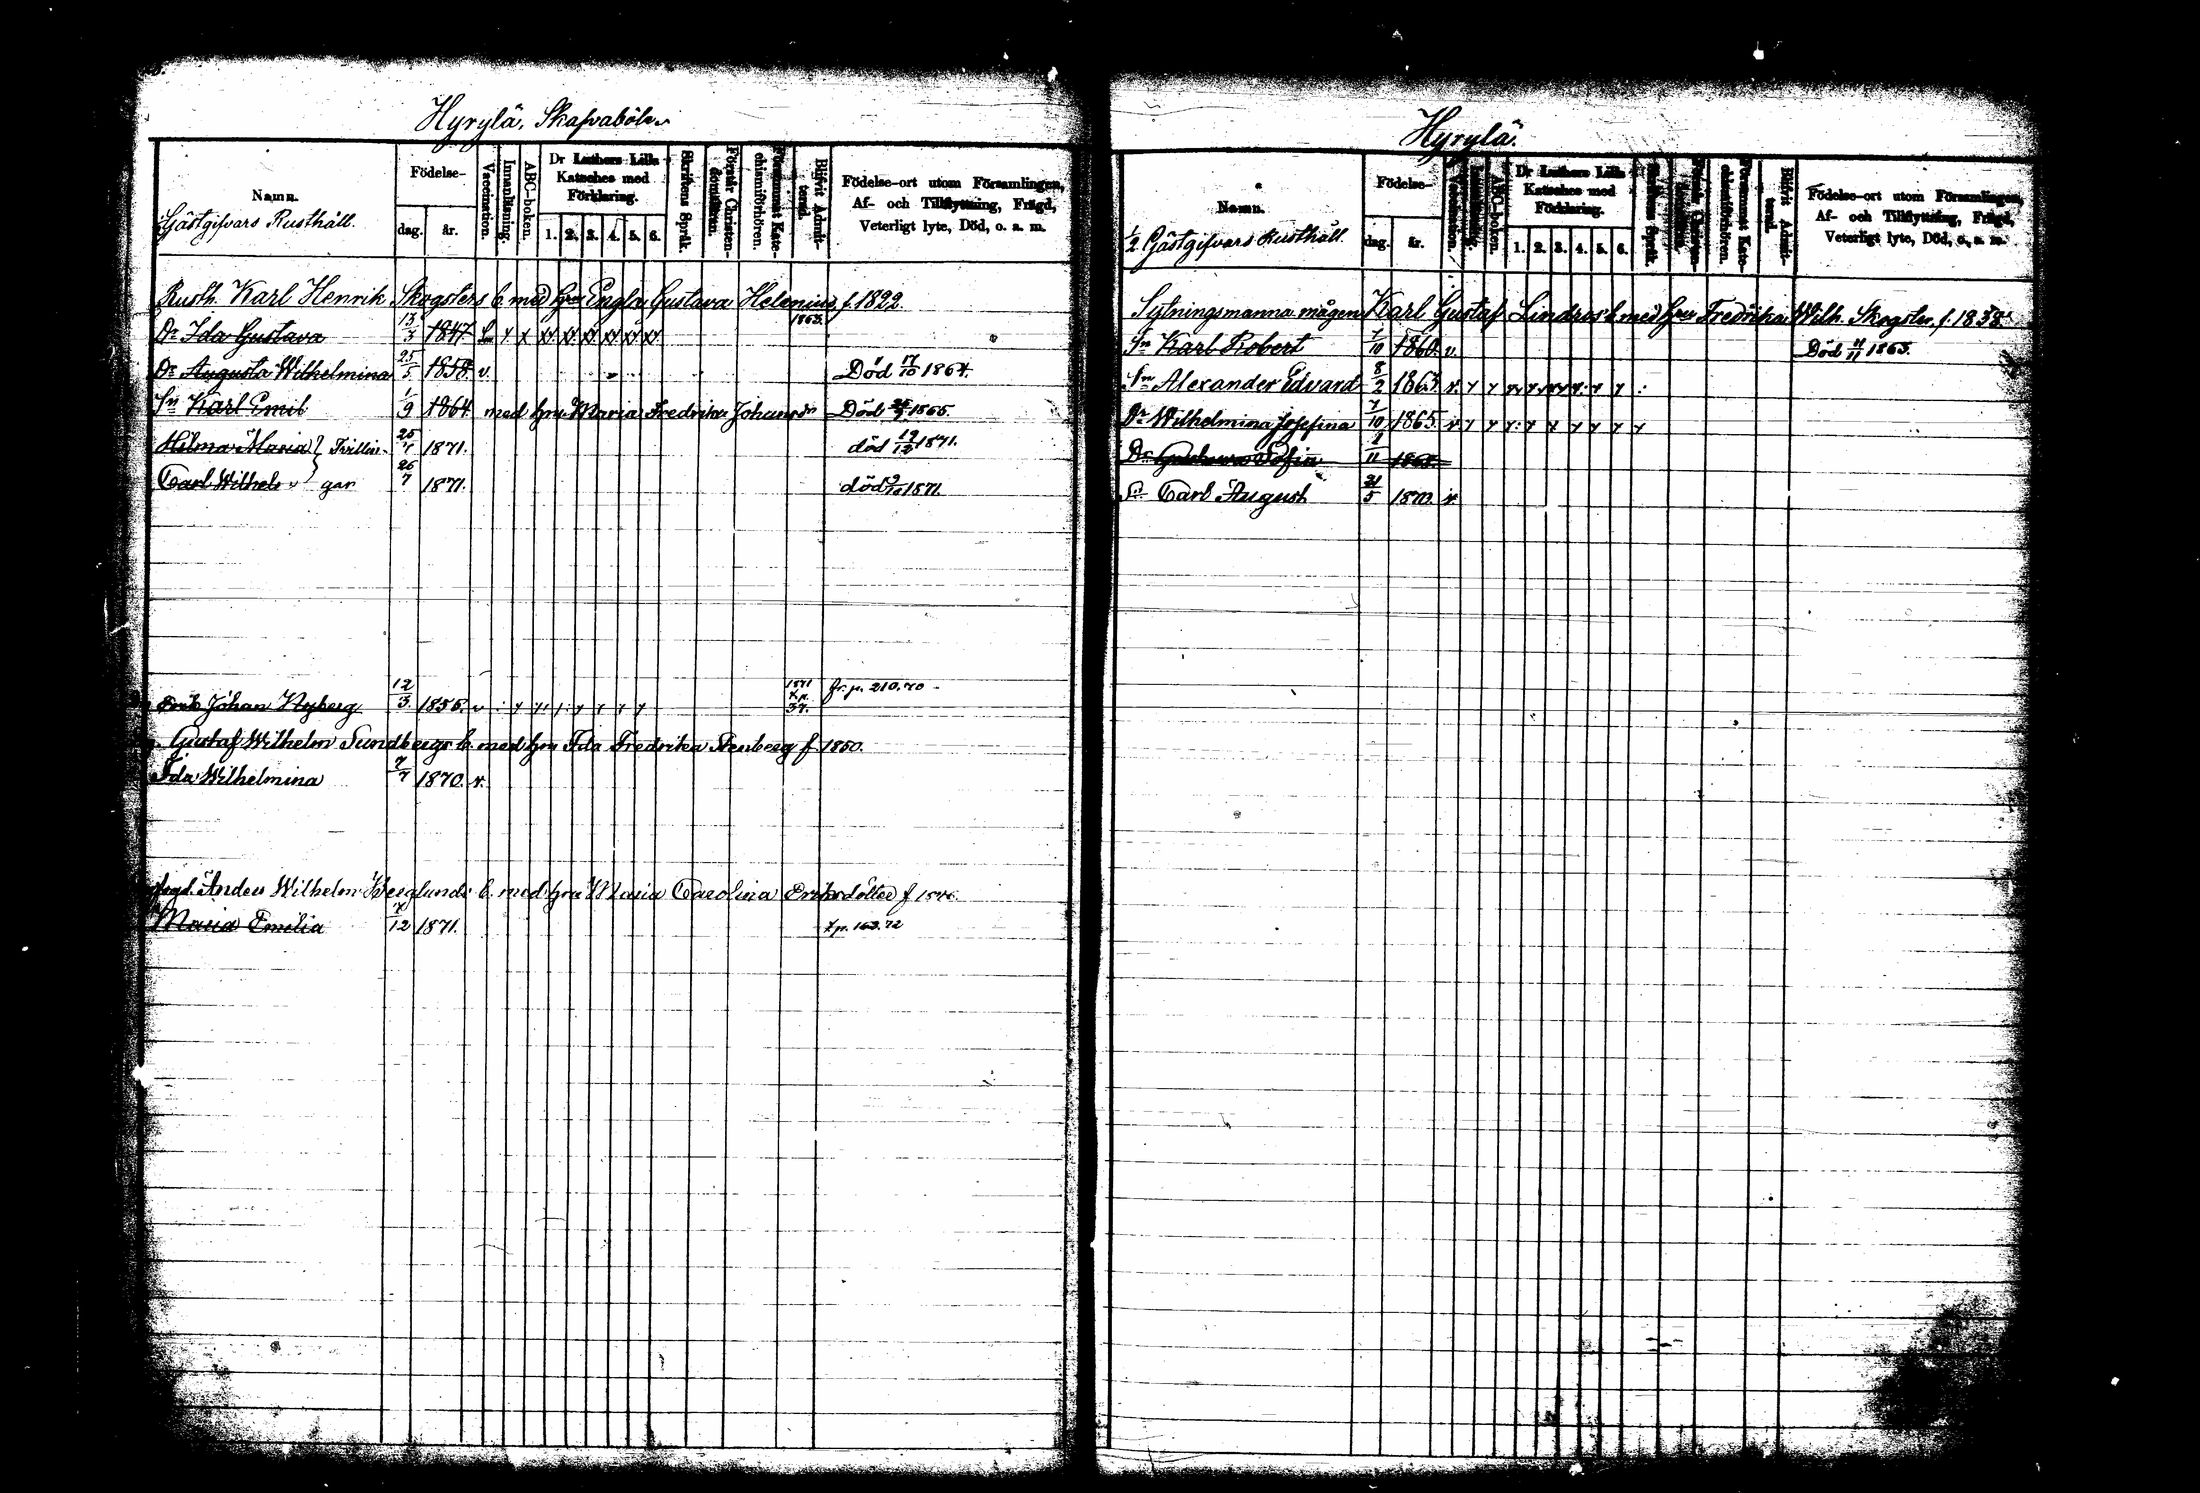 Hyrylä, Skafvaböle
Namn.
Gästgifvars Rusthåll.
Födelse-
dag.
år.
Vaccination.
Innanläsning.
ABC-boken.
Dr Luthers Lilla
Kateches med
Förklaring.
1. 2. 3. 4. 5. 6.
Skriftens Språk.
Förstår Christen-
domsläran.
Försummat Kate-
chismiförhören.
Blifvit Admit-
terad.
Födelse-ort utom Församlingen,
Af- och Tillflyttning, Frägd,
Veterligt lyte, Död, o. a. m.
Rusth. Karl Henrik Skogsters b. med hru Engla Gustava Helenius, f. 1822.
Dr Ida Gustava 13/3 1847 1863.
Dr Augusta Wilhelmina 25/5 1858. v. Död 17/10 1864.
Sn Karl Emil 1/9 1864 med hru Maria Fredrika Johansdr Död 1865.
Hilma Maria } Tvillin- 25/7 1871. död 12/12 1871.
Carl Wilhelm } gar 25/7 1871. död 1871.
Erik Johan Nyberg 12/3 1856. v 1871 Xp. 37. fr. p. 210. 70
Gustaf Wilhelm Sundbergs b. med hru Ida Fredrika Stenberg f 1850.
Ida Wilhelmina 7/7 1870. v.
Anders Wilhelm Berglunds b. med hru Maria Carolina Eriksdotter f
Maria Emilia 12 1871. Xp. 163. 72
Hyrylä.
Namn.
1/2 Gästgifvars Rusthåll.
Födelse-
dag.
år.
Vaccination.
Innanläsning.
ABC-boken.
Dr Luthers Lilla
Kateches med
Förklaring.
1. 2. 3. 4. 5. 6.
Skriftens Språk.
Förstår Christen-
domsläran.
Försummat Kate-
chismiförhören.
Blifvit Admit-
terad.
Födelse-ort utom Församlingen,
Af- och Tillflyttning, Frägd,
Veterligt lyte, Död, o. a. m.
Sytningsmanna mågen Karl Gustaf Lindros b. med hru Fredrika Wilh. Skogster, f. 1838.
Sn Karl Robert 7/10 1860. v. Död 4/11 1865.
Sn Alexander Edvard 8/2 1863 v.
Dr Wilhelmina Josefina 7/10 1865. v
Dr Sofia 1/11 1868.
Sn Carl August 21/5 1870. v.